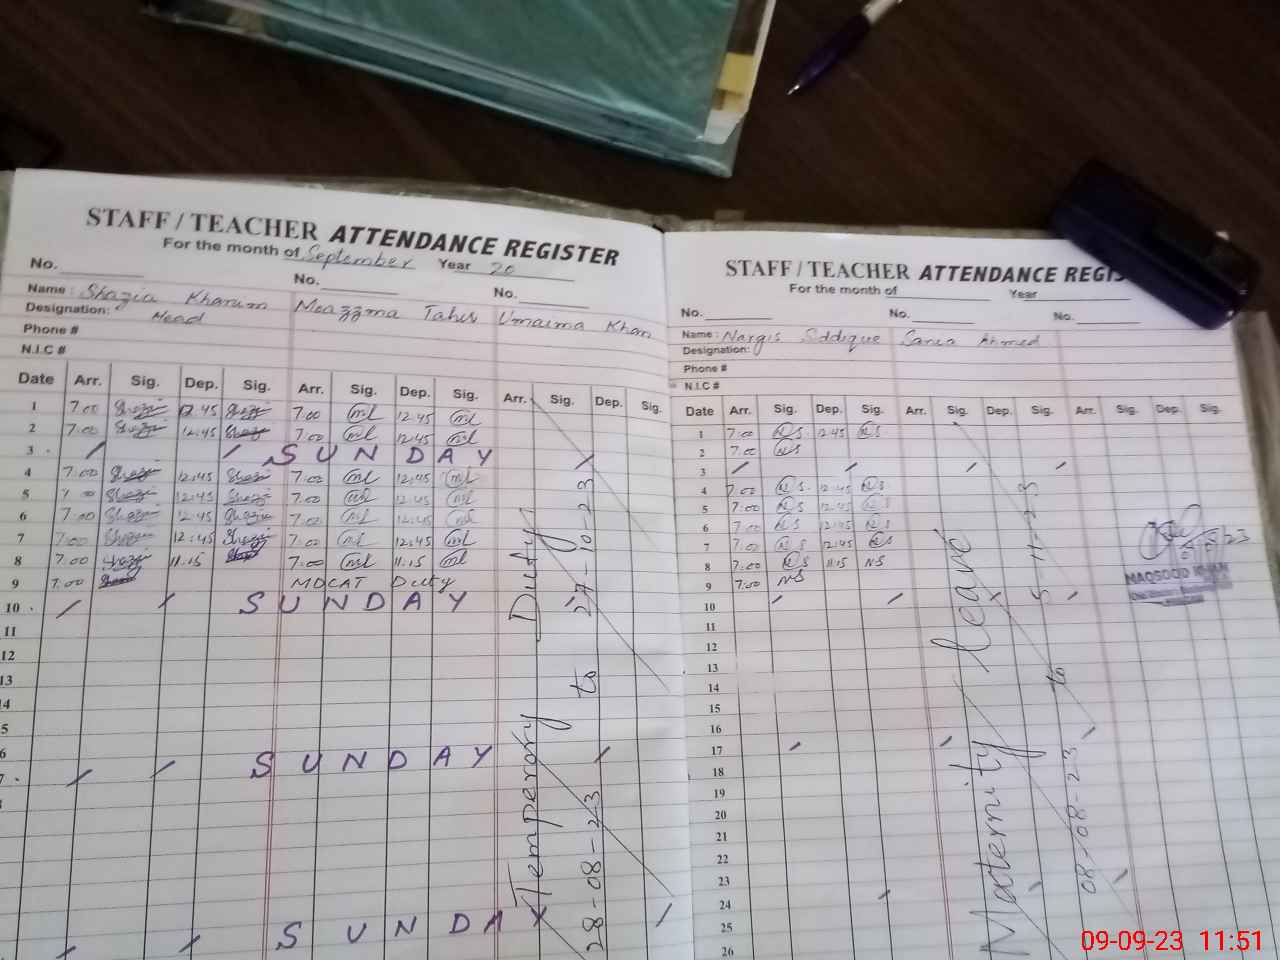 STAFF / TEACHER ATTENDANCE REGISTER
For the month of September Year 20
No. No. No.
Name: Shazia Khanum Moazzma Tahir Umaima Khan
Designation: Head
Phone #
N.I.C #
Date Arr. Sig. Dep. Sig. Arr. Sig. Dep. Sig. Arr. Sig. Dep. Sig.
1 7.00 Shazi 12.45 Shazi 7.00 ml 12.45 ml
2 7.00 Shazi 12.45 Shazi 7.00 ml 12.45 ml
3 SUNDAY
4 7.00 Shazi 12.45 Shazi 7.00 ml 12.45 ml
5 7.00 Shazi 12.45 Shazi 7.00 ml 12.45 ml
6 7.00 Shazi 12.45 Shazi 7.00 ml 12.45 ml
7 7.00 Shazi 12:45 Shazi 7.00 ml 12.45 ml
8 7.00 Shazi 11.15 Shazi 7.00 ml 11.15 ml
9 7.00 Shazi MDCAT Duty
10 SUNDAY
11
12
13
14
5
6
7 SUNDAY
SUNDAY
Temperary Duty
28-08-23 to 27-10-23
STAFF / TEACHER ATTENDANCE REGIS
For the month of Year
No. No. No.
Name: Nargis Siddique Sania Ahmed
Designation:
Phone #
N.I.C #
Date Arr. Sig. Dep. Sig. Arr. Sig. Dep. Sig. Arr. Sig. Dep. Sig.
1 7:00 NS 12.45 NS
2 7:00 NS
3
4 7:00 NS 12.45 NS
5 7:00 NS 12:45 NS
6 7:00 NS 12:45 NS
7 7:00 NS 12:45 NS
8 7:00 NS 11:15 NS
9 7:00 NS
10
11
12
13
14
15
16
17
18
19
20
21
22
23
24
25
26
Maternity leave
08-08-23 to 5-11-23
MAQSOOD KHAN
09-09-23 11:51